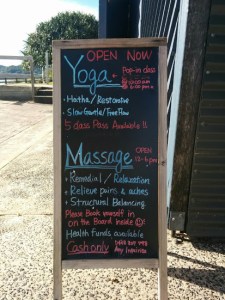 OPEN NOW
Yoga
Pop-in class
• Hatha / Restorative
• Slow Gentle / Free Flow
5 class Pass Available !!
Massage
OPEN
• Remedial / Relaxation
• Relieve pains & aches
• Structural Balancing
Please Book yourself in
on the Board inside
Health Funds available
Cash only